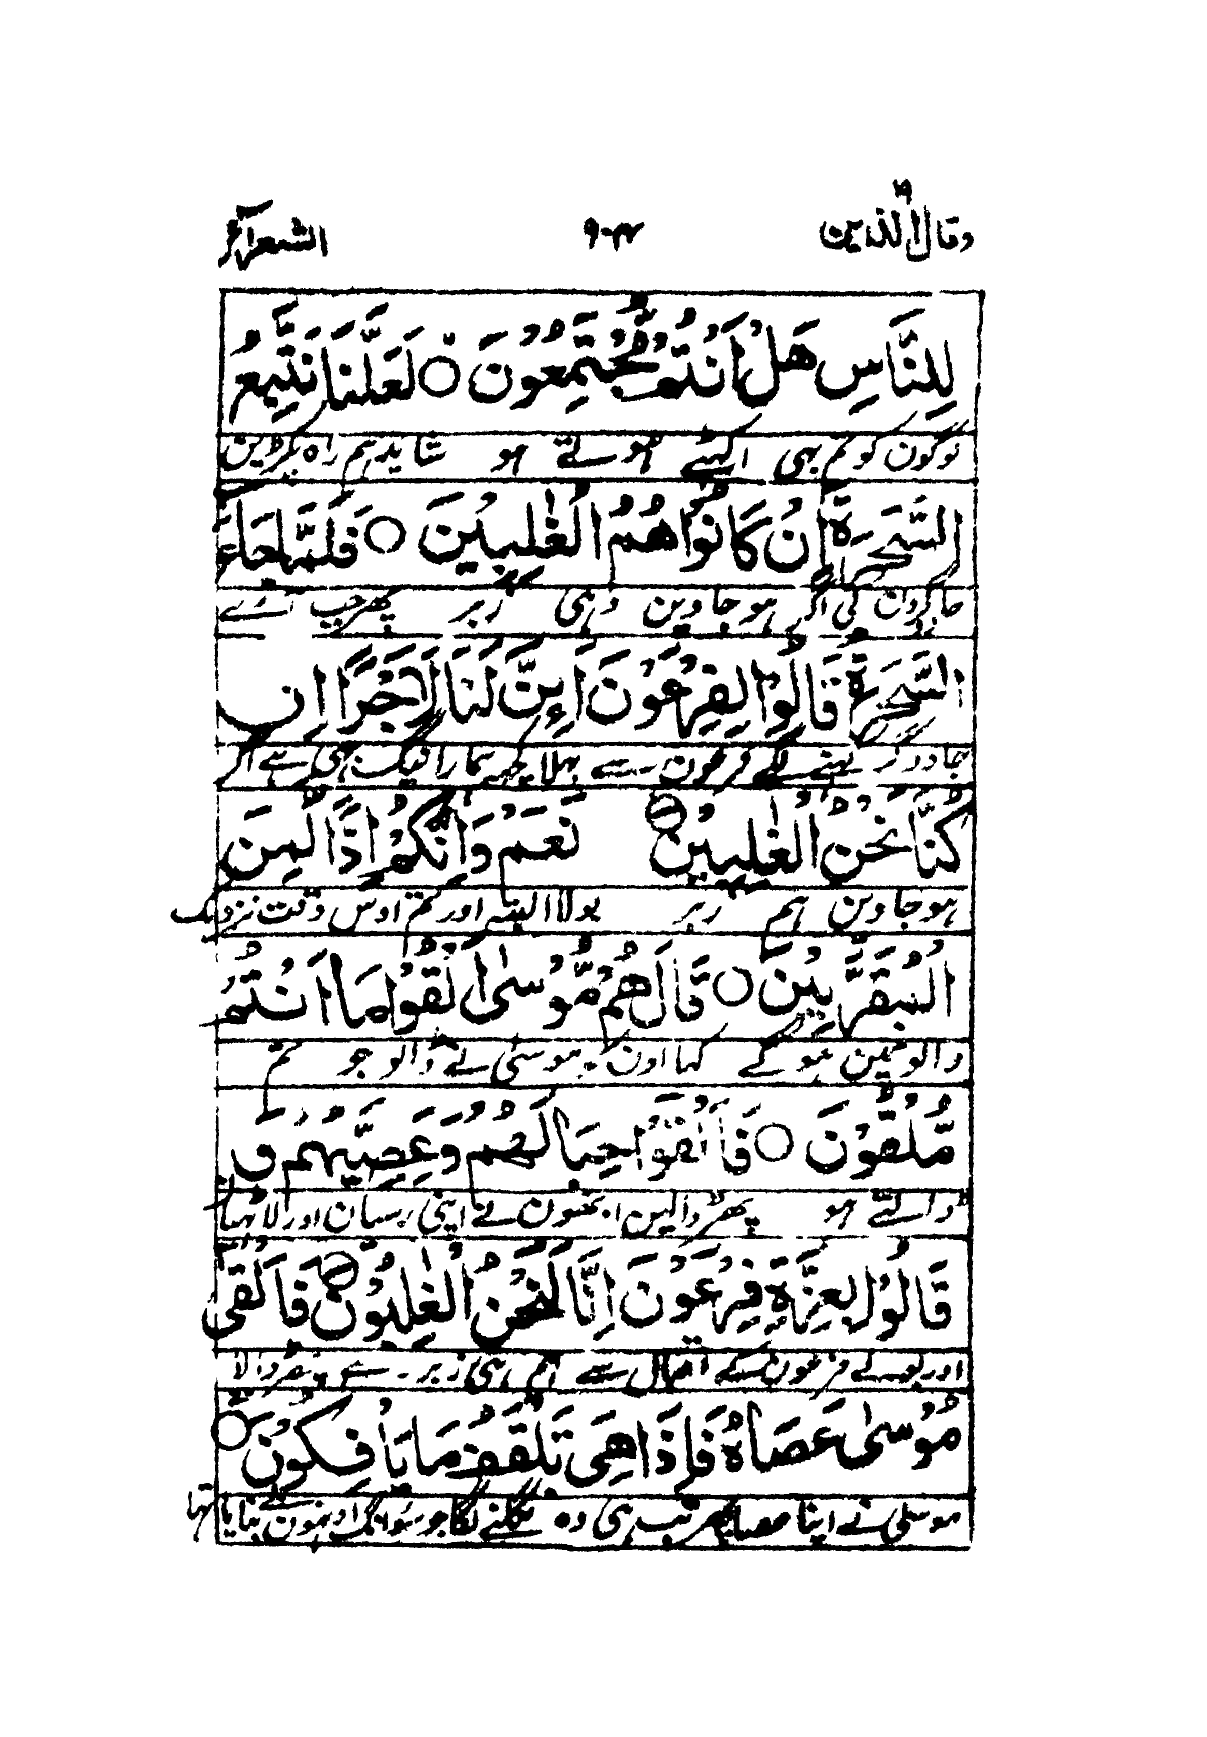 وقال الذین ۱۹ ۹۰۴ الشعرآء
لِلنَّاسِ هَلْ اَنْتُمْ مُّجْتَمِعُوْنَ ○ لَعَلَّنَا نَتَّبِعُ
لوگون کو تم بھی اکٹھے ہوتے ہو شاید ہم راہ پکڑین
السَّحَرَةَ اِنْ كَانُوْا هُمُ الْغٰلِبِيْنَ ○ فَلَمَّا جَآءَ
جادوگرون کی اگر ہو جاوین وہی زبر پھر جب آئے
السَّحَرَةُ قَالُوْا لِفِرْعَوْنَ اَئِنَّ لَنَا لَاَجْرًا اِنْ
جادوگر کہنے لگے فرعون سے بھلا کچھ ہمارا نیگ بھی ہے اگر
كُنَّا نَحْنُ الْغٰلِبِيْنَ ○ نَعَمْ وَاِنَّكُمْ اِذًا لَّمِنَ
ہو جاوین ہم زبر بولا البتہ اور تم اوس وقت نزدیک
الْمُقَرَّبِيْنَ ○ قَالَ لَهُمْ مُّوْسٰى اَلْقُوْا مَا اَنْتُمْ
والونمین ہو گے کہا اون کو موسیٰ نے ڈالو جو تم
مُّلْقُوْنَ ○ فَاَلْقَوْا حِبَالَهُمْ وَعِصِيَّهُمْ وَ
ڈالتے ہو پھر ڈالین انھون نے اپنی رسیان اور لاٹھیان
قَالُوْا بِعِزَّةِ فِرْعَوْنَ اِنَّا لَنَحْنُ الْغٰلِبُوْنَ ○ فَاَلْقٰى
اور بولے فرعون کے اقبال سے ہم ہی زبر رہے پھر ڈالا
مُوْسٰى عَصَاهُ فَاِذَا هِيَ تَلْقَفُ مَا يَاْفِكُوْنَ ○
موسیٰ نے اپنا عصا پھر تب ہی وہ نگلنے لگا جو سوانگ اونھون نے بنایا تھا